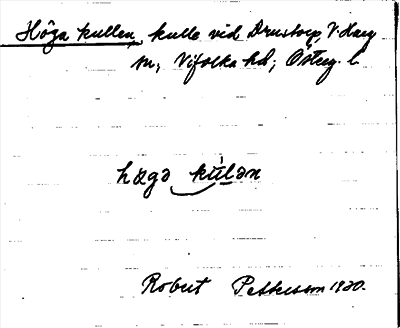 Höga kullen, kulle vid Drustorp, V. Harg
sn, Vifolka hd, Österg. l.
högə kúlən
Robert Pettersson 1920.